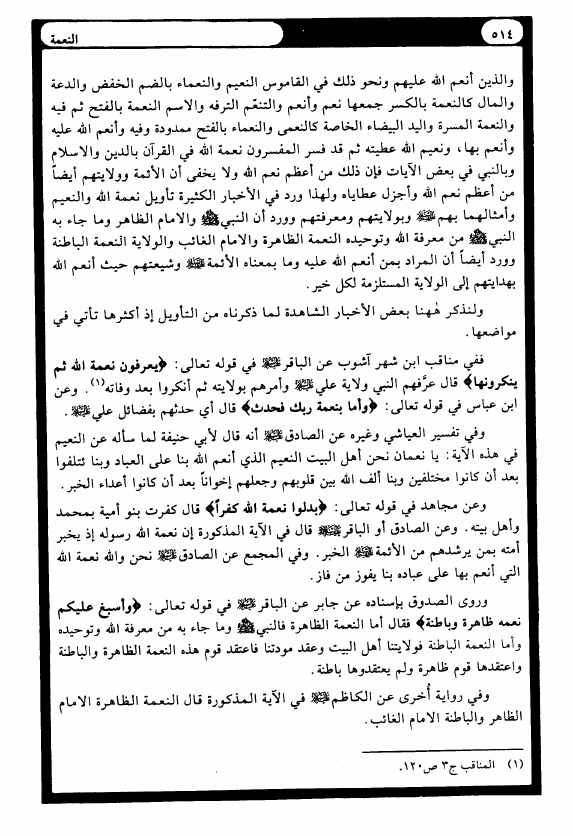 ٥١٤
النعمة
والذين أنعم الله عليهم ونحو ذلك في القاموس النعيم والنعماء بالضم الخفض والدعة
والمال كالنعمة بالكسر جمعها نعم وأنعم والتنعّم الترفه والاسم النعمة بالفتح ثم فيه
والنعمة المسرة واليد البيضاء الخاصة كالنعمى والنعماء بالفتح ممدودة وفيه وأنعم الله عليه
وأنعم بها، ونعيم الله عطيته ثم قد فسر المفسرون نعمة الله في القرآن بالدين والاسلام
وبالنبي في بعض الآيات فإن ذلك من أعظم نعم الله ولا يخفى أن الأئمة وولايتهم أيضاً
من أعظم نعم الله وأجزل عطاياه ولهذا ورد في الأخبار الكثيرة تأويل نعمة الله والنعيم
وأمثالهما بهم ﷺ وبولايتهم ومعرفتهم وورد أن النبي ﷺ والامام الظاهر وما جاء به
النبي ﷺ من معرفة الله وتوحيده النعمة الظاهرة والامام الغائب والولاية النعمة الباطنة
وورد أيضاً أن المراد بمن أنعم الله عليه وما بمعناه الأئمة وشيعتهم حيث أنعم الله
بهدايتهم إلى الولاية المستلزمة لكل خير.
ولنذكر هٰهنا بعض الأخبار الشاهدة لما ذكرناه من التأويل إذ أكثرها تأتي في
مواضعها.
ففي مناقب ابن شهر آشوب عن الباقر في قوله تعالى: ﴿يعرفون نعمة الله ثم
ينكرونها﴾ قال عرَّفهم النبي ولاية علي وأمرهم بولايته ثم أنكروا بعد وفاته(١). وعن
ابن عباس في قوله تعالى: ﴿وأما بنعمة ربك فحدث﴾ قال أي حدثهم بفضائل علي.
وفي تفسير العياشي وغيره عن الصادق أنه قال لأبي حنيفة لما سأله عن النعيم
في هذه الآية: يا نعمان نحن أهل البيت النعيم الذي أنعم الله بنا على العباد وبنا ئتلفوا
بعد أن كانوا مختلفين وبنا ألف الله بين قلوبهم وجعلهم إخواناً بعد أن كانوا أعداء الخبر.
وعن مجاهد في قوله تعالى: ﴿بدلوا نعمة الله كفراً﴾ قال كفرت بنو أمية بمحمد
وأهل بيته. وعن الصادق أو الباقر قال في الآية المذكورة إن نعمة الله رسوله إذ يخبر
أمته بمن يرشدهم من الأئمة الخبر. وفي المجمع عن الصادق نحن والله نعمة الله
التي أنعم بها على عباده بنا يفوز من فاز.
وروى الصدوق بإسناده عن جابر عن الباقر في قوله تعالى: ﴿وأسبغ عليكم
نعمه ظاهرة وباطنة﴾ فقال أما النعمة الظاهرة فالنبي ﷺ وما جاء به من معرفة الله وتوحيده
وأما النعمة الباطنة فولايتنا أهل البيت وعقد مودتنا فاعتقد قوم هذه النعمة الظاهرة والباطنة
واعتقدها قوم ظاهرة ولم يعتقدوها باطنة.
وفي رواية أُخرى عن الكاظم في الآية المذكورة قال النعمة الظاهرة الامام
الظاهر والباطنة الامام الغائب.
(١) المناقب ج٣ ص١٢٠.